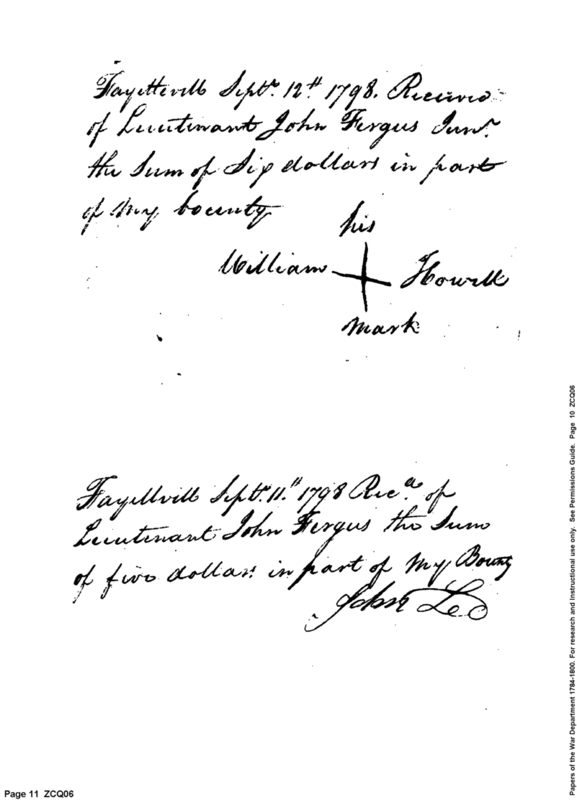 Fayetteville Septr. 12th 1798. Received
of Lieutenant John Fergus Junr.
the Sum of Six dollars in part
of my bounty
his
William + Howell
mark
Fayettville Septr. 11th 1798 Recd. of
Lieutenant John Fergus the Sum
of five dollars in part of my Bounty
John Leo
Papers of the War Department 1784-1800. For research and instructional use only. See Permissions Guide. Page 10 ZCQ06
Page 11 ZCQ06